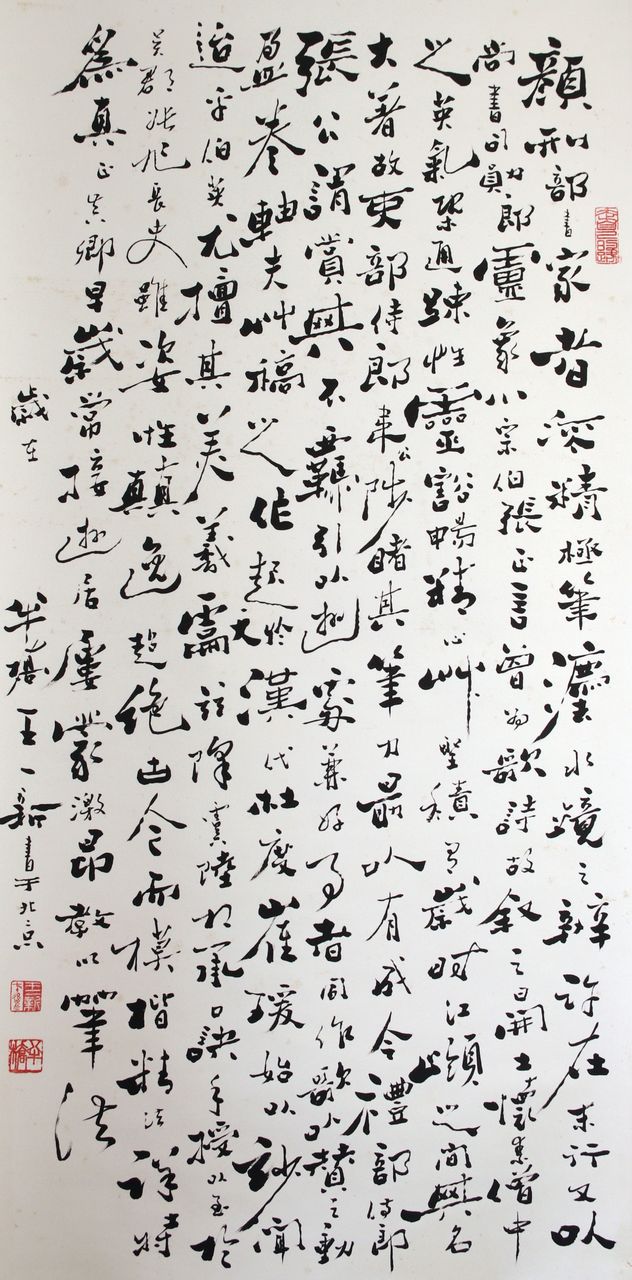 顔刑部書家者流精極筆法水鏡之辨許在末行又以
尚書司勳郎盧象小宗伯張正言曾為歌詩故敘之曰開士懷素僧中
之英氣概通疎性靈豁暢精心草聖積有歲時江嶺之間其名
大著故吏部侍郎韋公陟睹其筆力勗以有成今禮部侍郎
張公謂賞其不羈引以遊處兼好事者同作歌以贊之動
盈卷軸夫草稿之作起於漢代杜度崔瑗始以妙聞
迨乎伯英尤擅其美羲獻茲降虞陸相承口訣手授以至於
吳郡張旭長史雖姿性顛逸超絕古今而模楷精法詳特
為真正真卿早歲常接遊居屢蒙激昂教以筆法
歲在
王一新書于北京